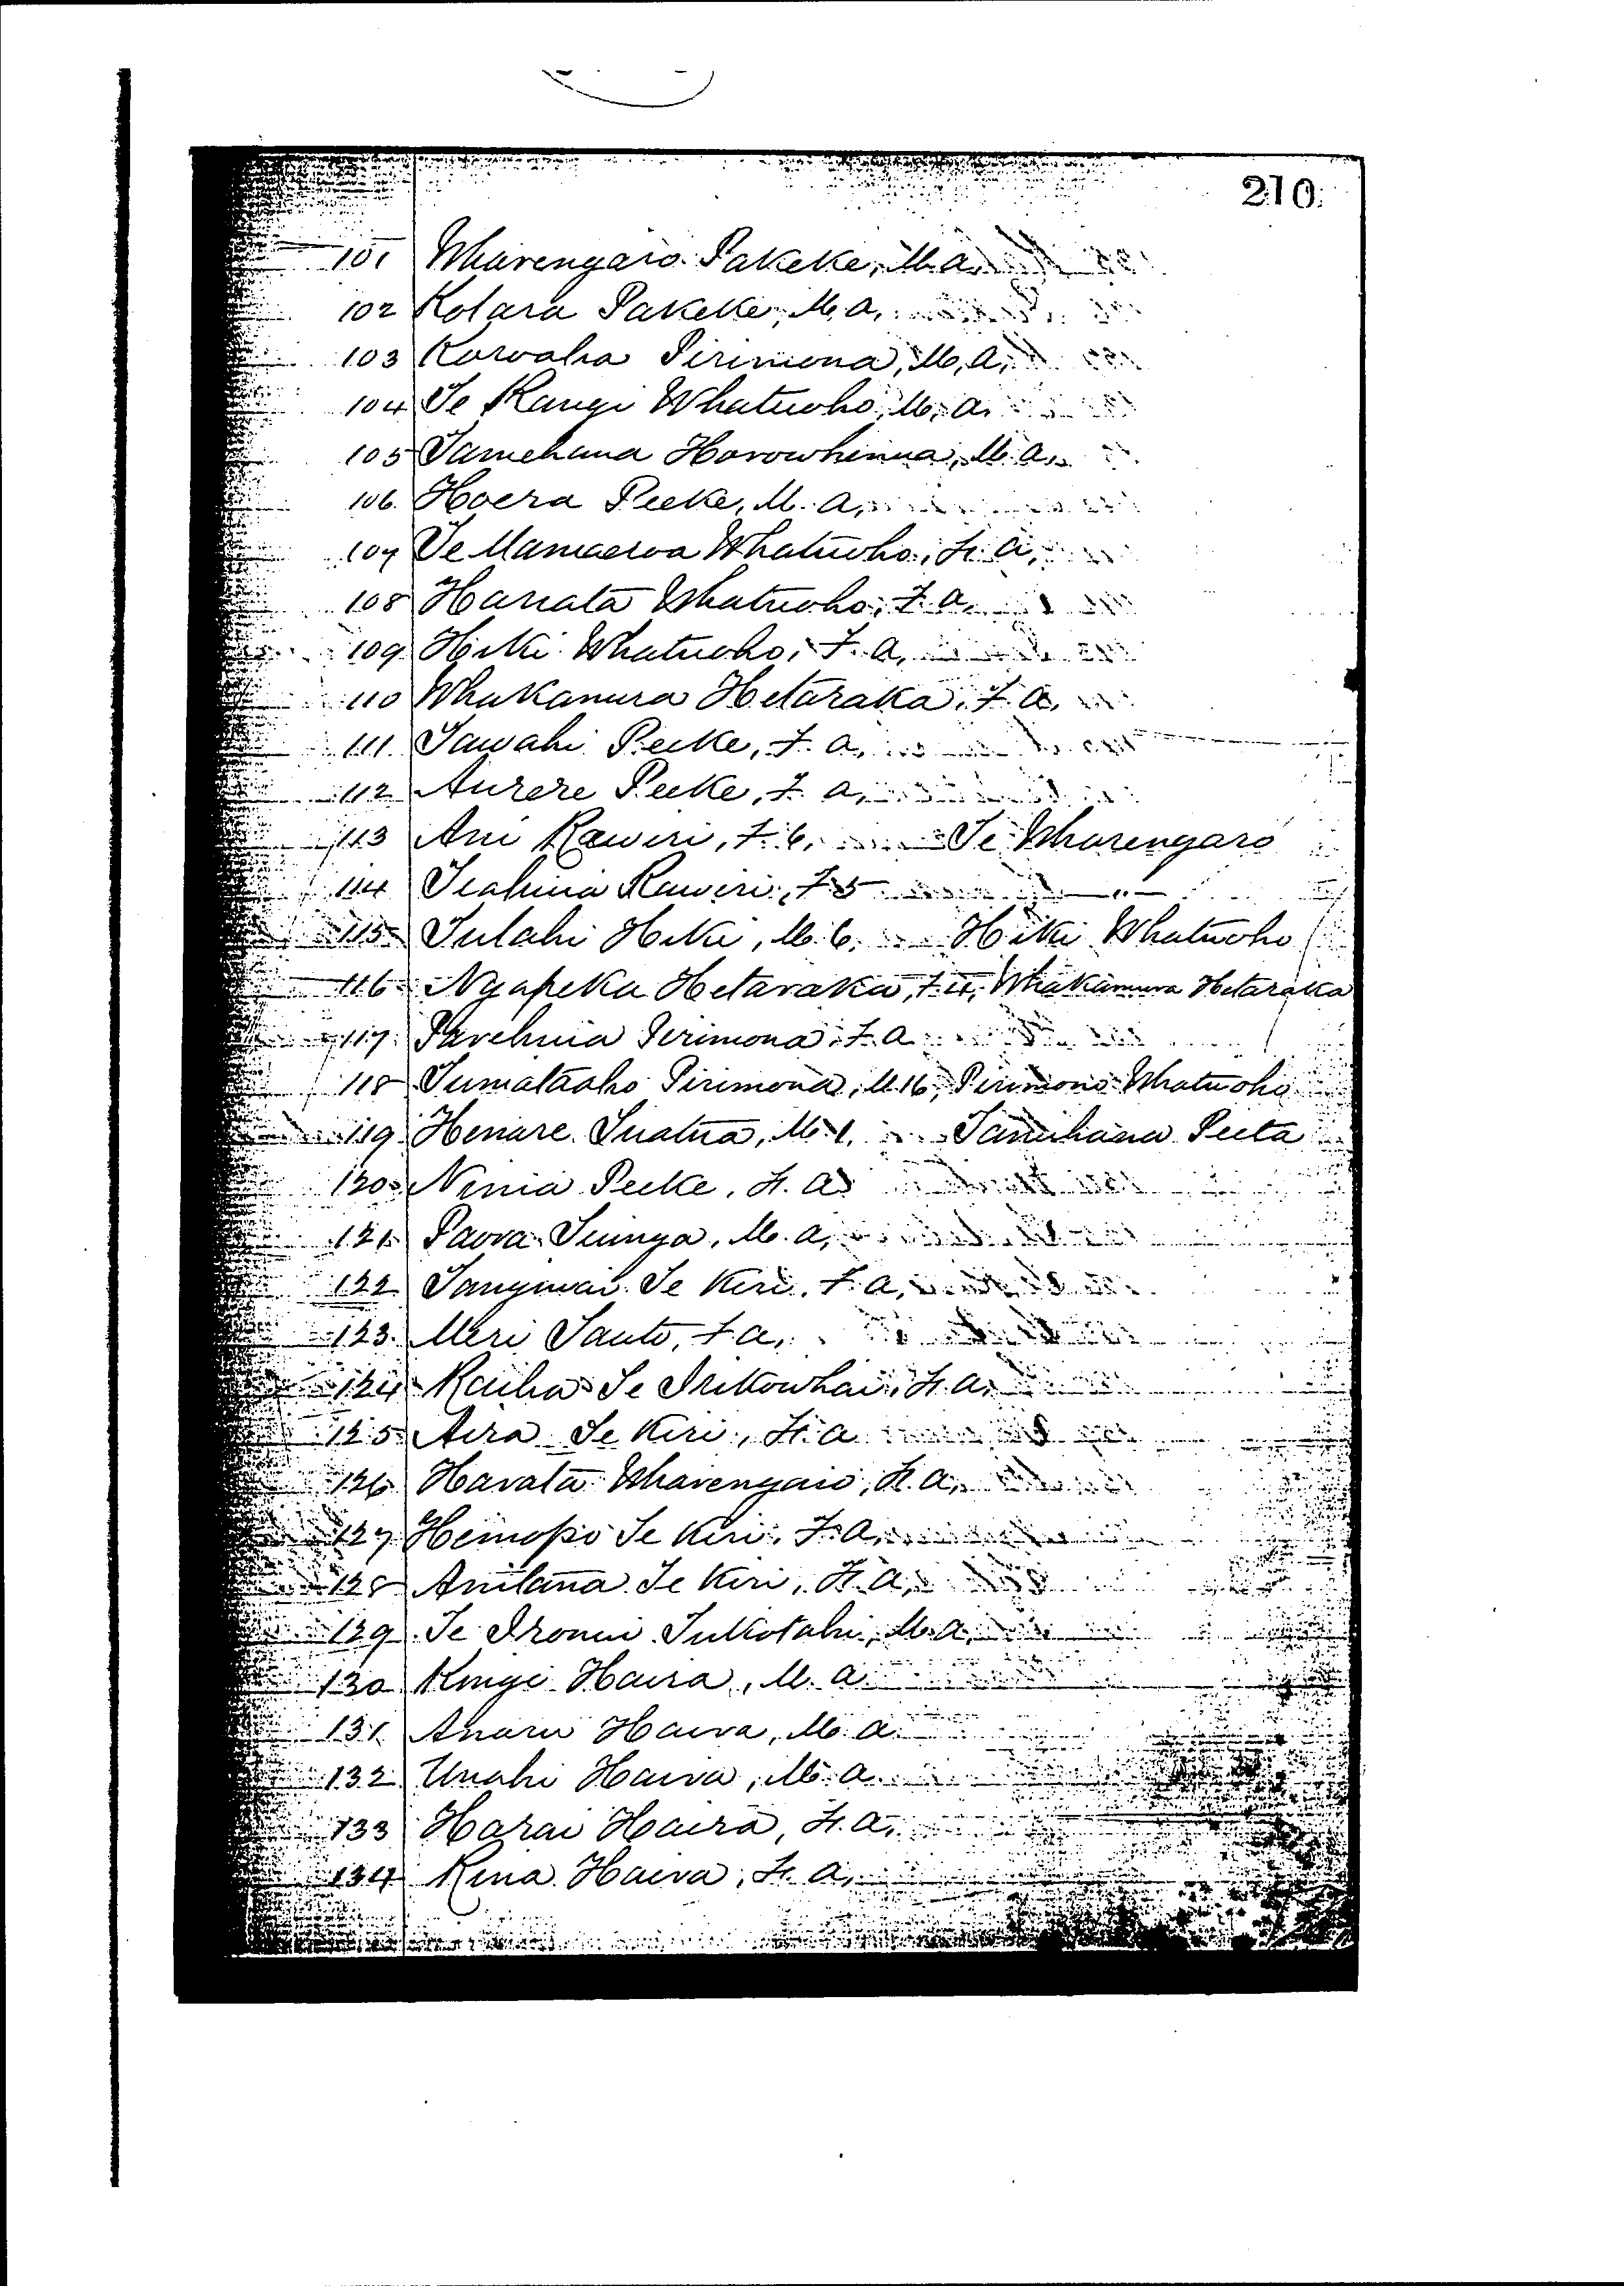 210
101 Wharengaro Pakeke, M. a,
102 Kotara Pakeke, M, a,
103 Karoaha Pirimona, M, a,
104 Te Rangi Whatuoho, M, a,
105 Tamehana Horowhenua, M. a,
106 Hoera Peeke, M. a,
107 Te Mamaeroa Whatuoho, F. a,
108 Harata Whatuoho, F. a,
109 Hiki Whatuoho, F. a,
110 Whakamura Hetaraka, F. a,
111 Tawahi Peeke, F. a,
112 Aurere Peeke, F. a,
113 Ani Rawiri, F. 6, Te Wharengaro
114 Teahuia Rawiri, F 5 —"—
115 Tutahi Hiki, M. 6, Hiki Whatuoho
116 Ngapeka Hetaraka, F 4, Whakamura Hetaraka
117 Parehuia Pirimona, F. a
118 Tumataaho Pirimona, M 16, Pirimona Whatuoho
119 Henare Tuatua, M 1, Tamihana Peeta
120 Ninia Peeke, F. a
121 Paora Tuinga, M. a,
122 Tangiwai Te Kiri, F. a,
123 Meri Tauto, F a,
124 Raiha Te Irikowhai, F. a,
125 Aira Te Kiri, F. a
126 Harata Wharengaro, F. a,
127 Hemopo Te Kiri, F. a,
128 Anitana Te Kiri, F. a,
129 Te Tukotahi, M. a,
130 Kingi Haira, M. a
131 Anaru Haira, M. a
132 Unahi Haira, M. a
133 Harai Haira, F. a,
134 Rina Haira, F. a,